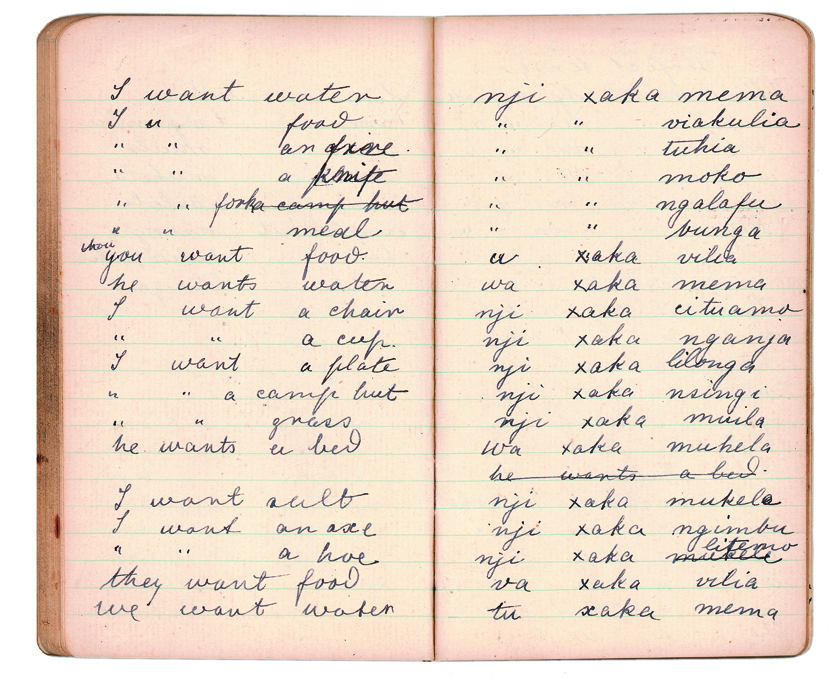 I want water
I " food
" " an fire.
" " a knife
" " fork a camp hut
" " meal
thou
you want food.
he wants water
I want a chair
" " a cup.
I want a plate
" " a camp hut
" " grass
he wants a bed
I want salt
I want an axe
" " a hoe
they want food
we want water
nji xaka mema
" " viakulia
" " tuhia
" " moko
" " ngalafu
" " bunga
u xaka vilia
wa xaka mema
nji xaka cituamo
nji xaka nganja
nji xaka lilonga
nji xaka nsingi
nji xaka muila
wa xaka muhela
he wants a bed.
nji xaka mukele
nji xaka ngimbu
litemo
nji xaka mukele
va xaka vilia
tu xaka mema